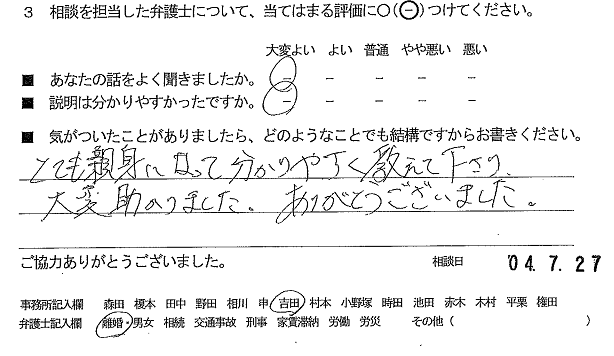 3 相談を担当した弁護士について、当てはまる評価に○(⊖)つけてください。
大変よい よい 普通 やや悪い 悪い
■ あなたの話をよく聞きましたか。 － － － － －
■ 説明は分かりやすかったですか。 － － － － －
■ 気がついたことがありましたら、どのようなことでも結構ですからお書きください。
とても親身になって分かりやすく教えて下さり、
大変助かりました。ありがとうございました。
ご協力ありがとうございました。 相談日 04.7.27
事務所記入欄 森田 榎本 田中 野田 相川 申 吉田 村本 小野塚 時田 池田 赤木 木村 平栗 権田
弁護士記入欄 離婚・男女 相続 交通事故 刑事 家賃滞納 労働 労災 その他（ ）